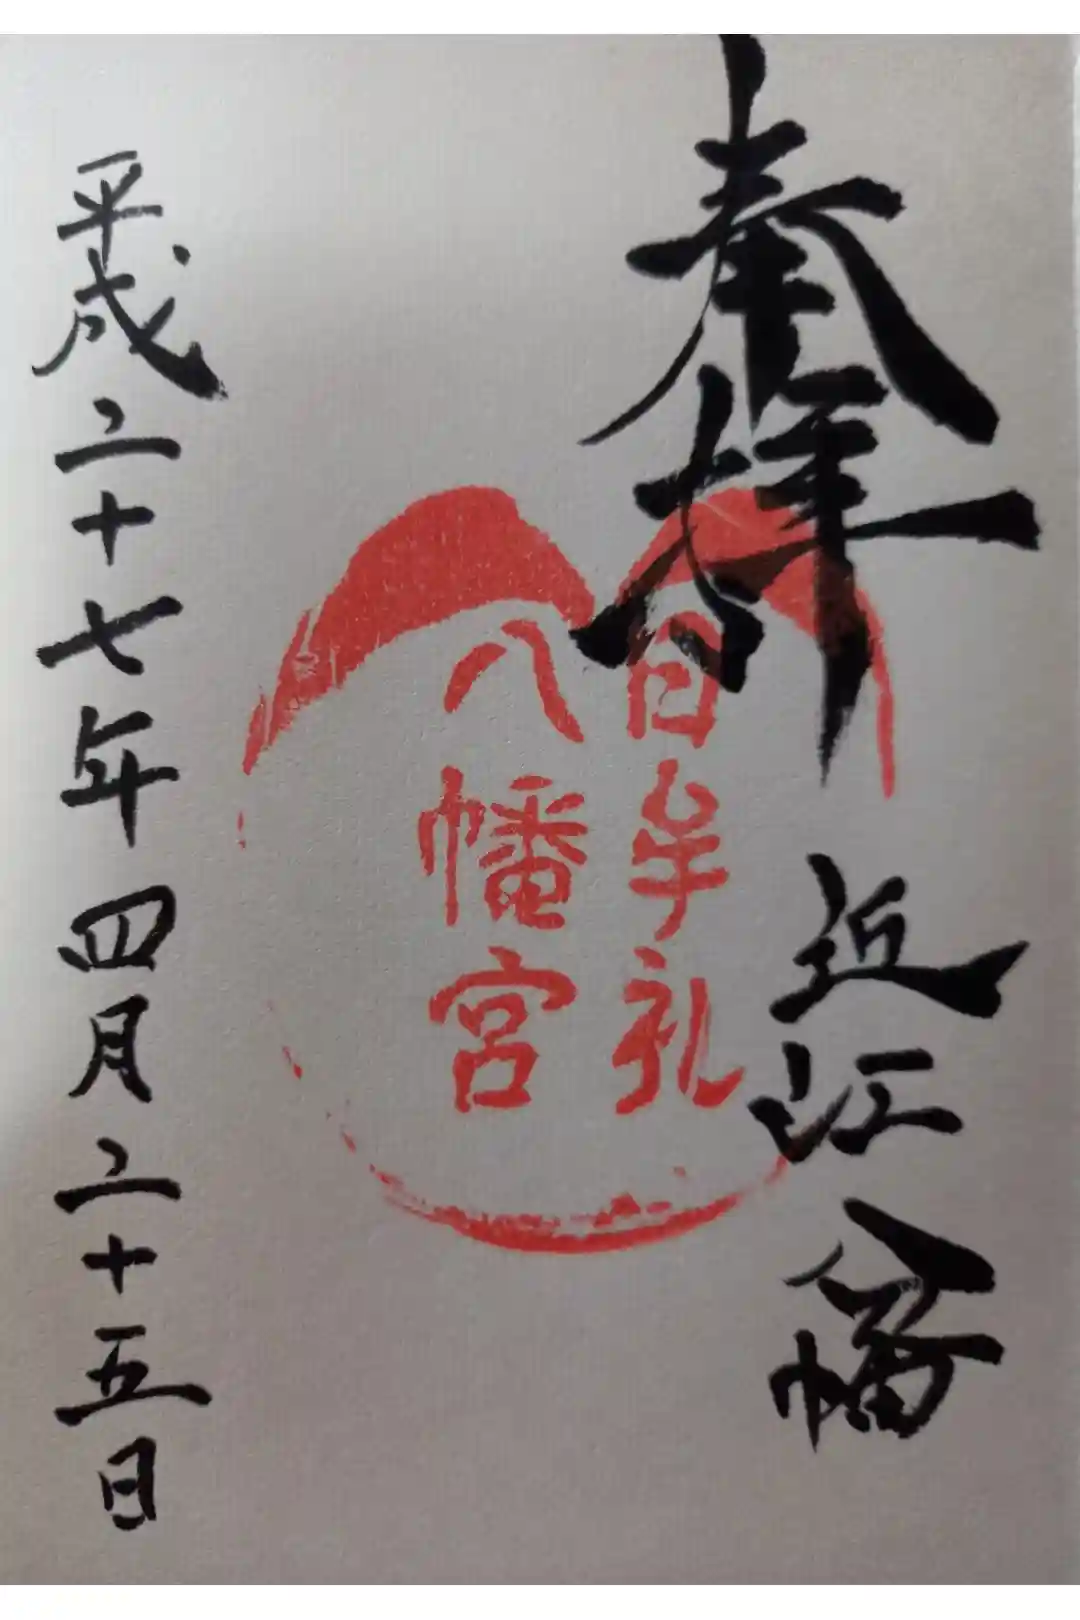 奉拝
近江八幡
日牟礼
八幡宮
平成二十七年四月二十五日